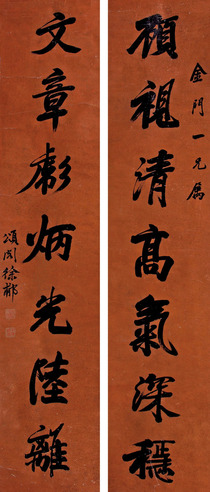 金門一兄屬
顧視清高氣深穩
文章彪炳光陸離
頌閣徐郙